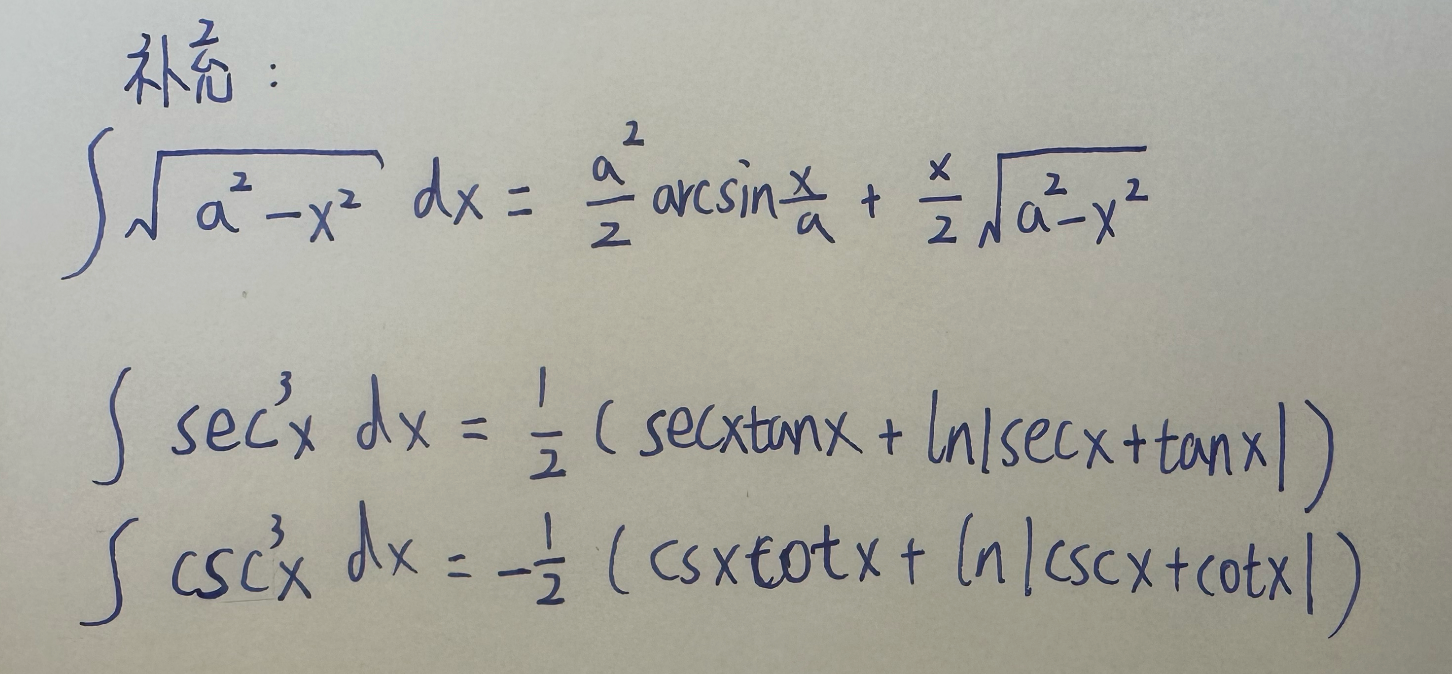 补充：
∫ √(a²-x²) dx = a²/2 arcsin x/a + x/2 √(a²-x²)
∫ sec³x dx = 1/2 (secxtanx + ln|secx+tanx|)
∫ csc³x dx = -1/2 (csxcotx + ln|cscx+cotx|)